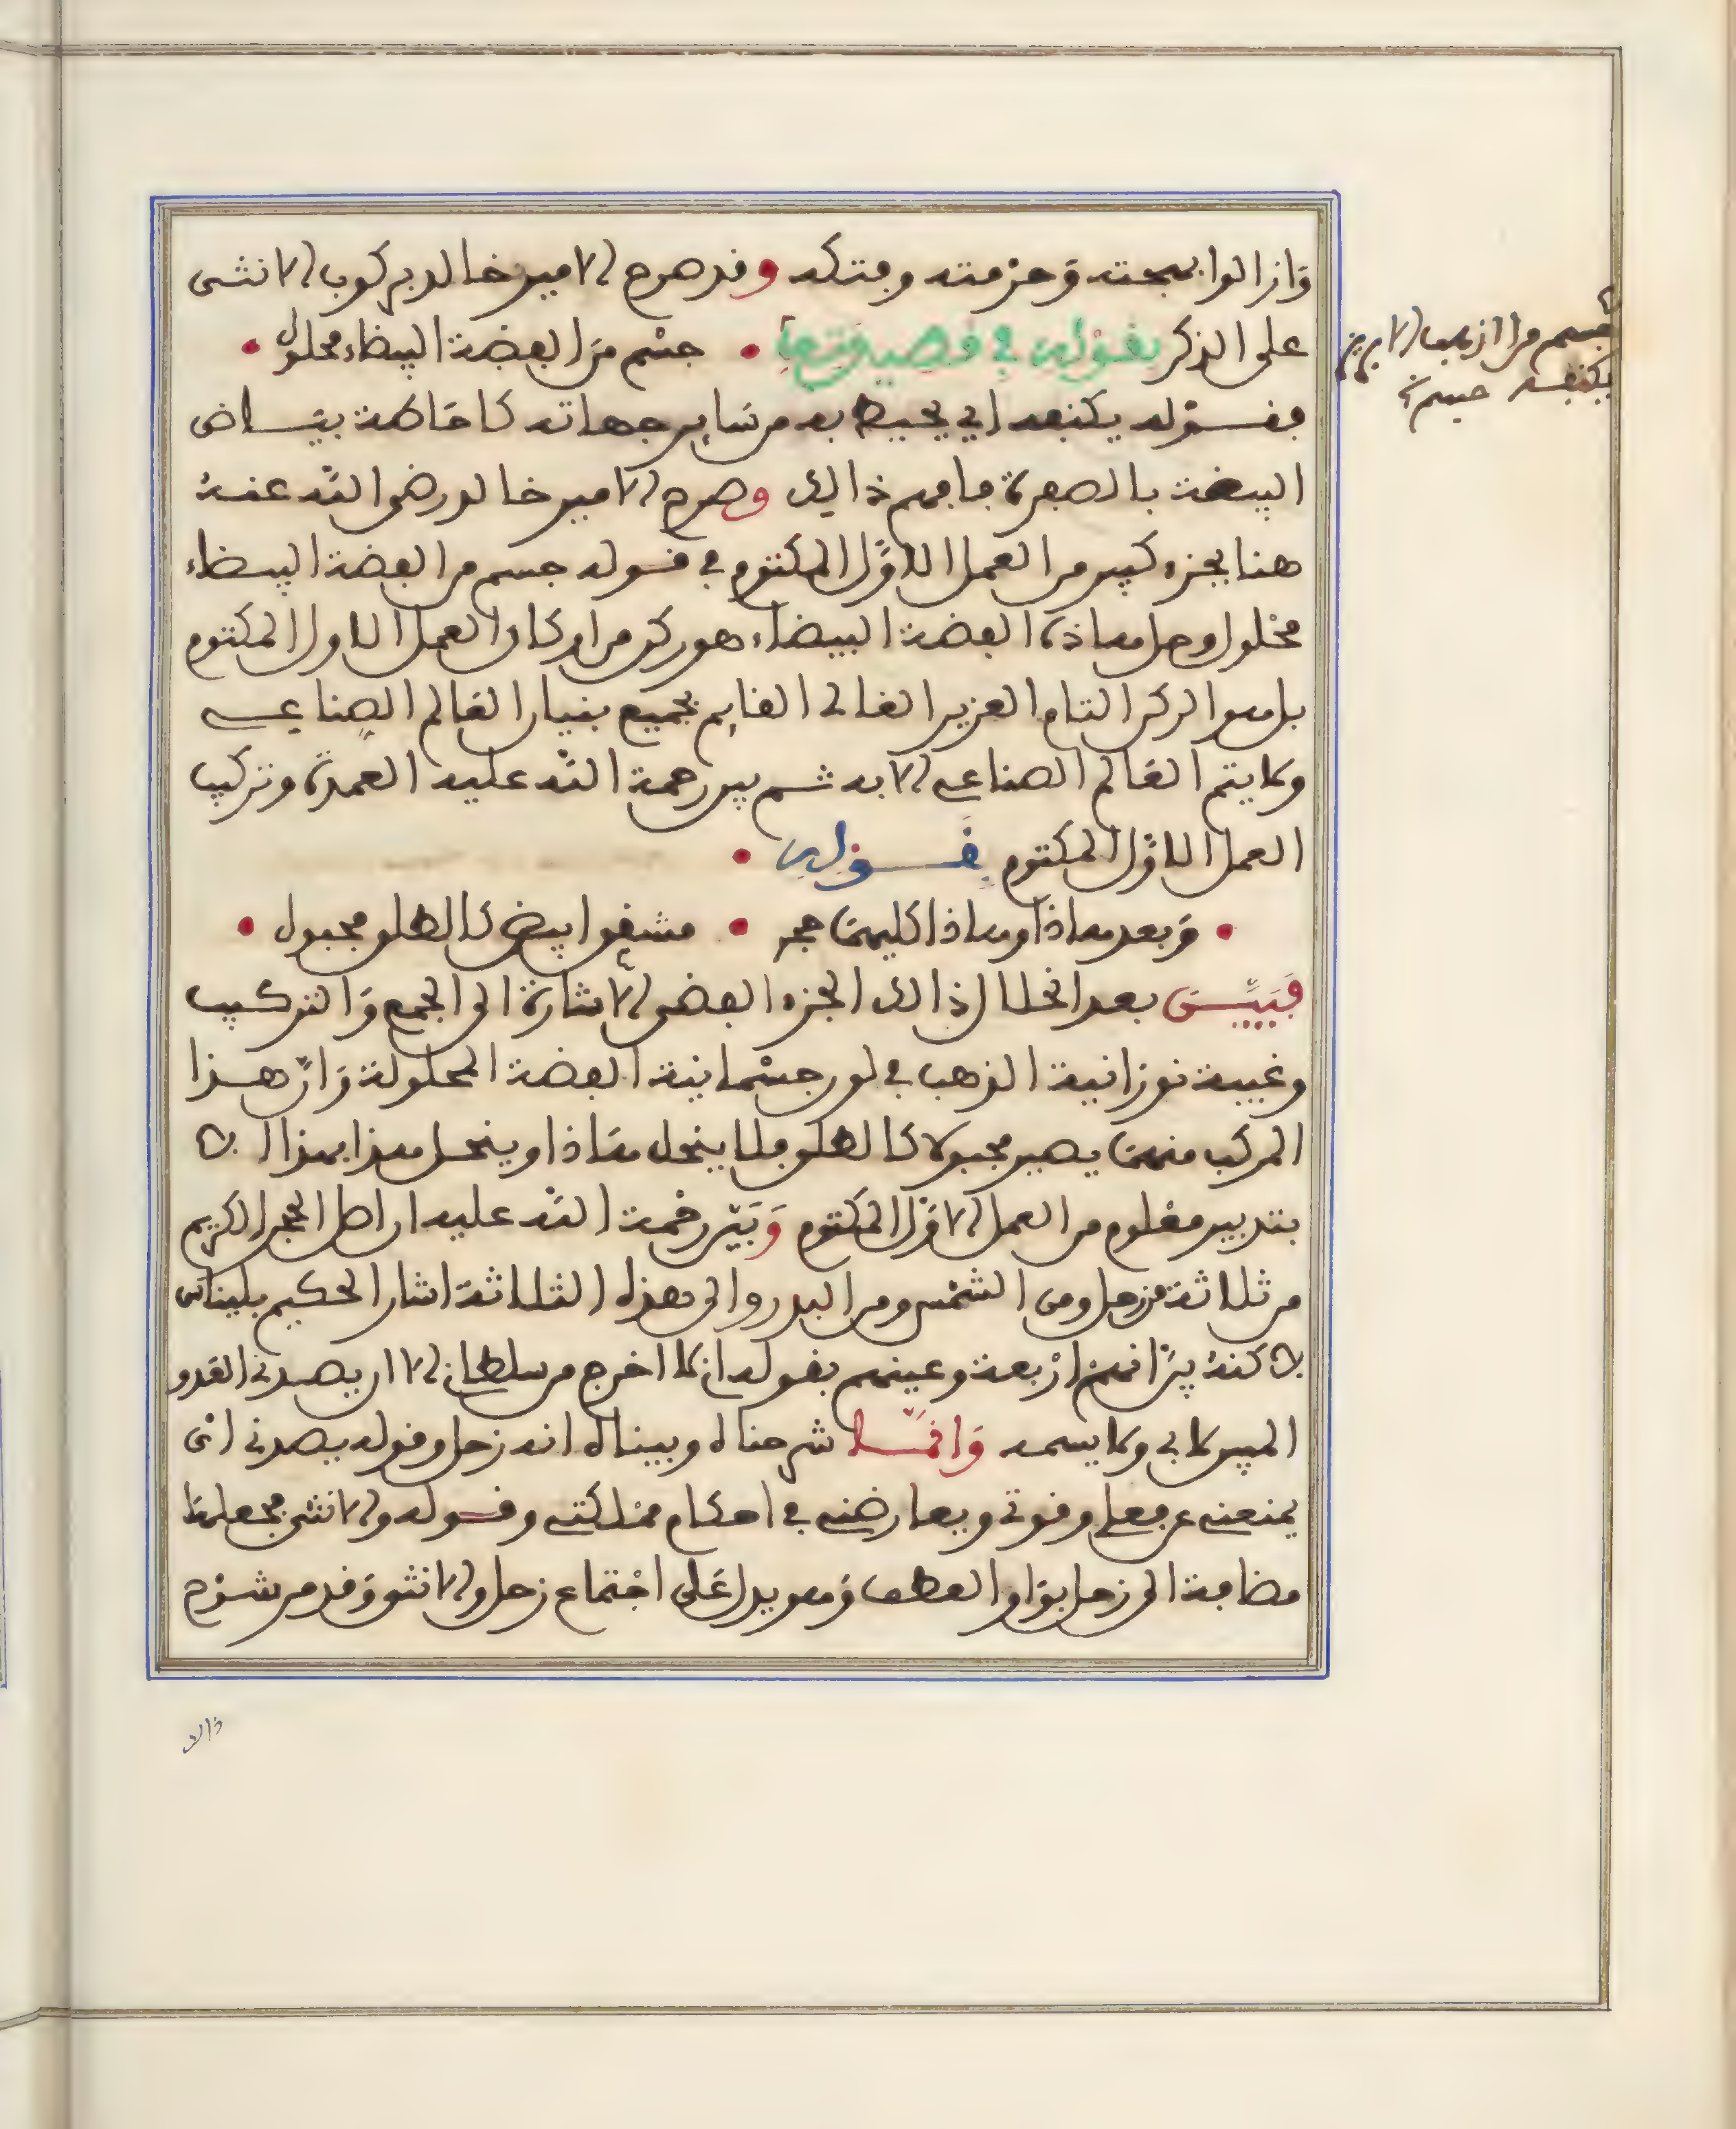 وازالوا بهجته وحزمته وفتكه وقد صرح الامير خالد بركوب الانثى
على الذكر بقوله في قصيدته • جسم من الفضة البيضاء محلول •
جسم من الذهب الابريز يكنفه جسم
فقوله يكنفه اي يحيط به من ساير جهاته كاحاطة بياض
البيضة بالصفرة فافهم ذالك وصرح الامير خالد رضي الله عنه
هنا بجزء كبير من العمل الاول المكتوم في قوله جسم من الفضة البيضاء
محلول وحل هاذه الفضة البيضاء هو ركن من اركان العمل الاول المكتوم
بل هو الركن التام العزيز الغالي القايم بجميع بنيان العالم الصناعي
ولا يتم العالم الصناعي الا به ثم بين رحمة الله عليه العمدة وتركيب
العمل الاول المكتوم بقوله •
• وبعد هاذا وهاذا كليهما حجر • مشف ابيض كالطلو مجبول •
فبين بعد انحلال ذالك الجزء الفضي الاشارة الى الجمع والتركيب
وغيبة نورانية الذهب في لون جسمانية الفضة المحلولة وان هذا
المركب منهما يصير مجبولا كالطلو فلا ينحل هاذا وينحل هذا بهذا الا
بتدبير معلوم من العمل الاول المكتوم وبين رحمة الله عليه ان اصل الحجر الكريم
من ثلاثة من زحل ومن الشمس ومن البدر والى هذه الثلاثة اشار الحكيم بليناس
لاكنه بين انهم اربعة وعينهم بقوله انه لا اخرج من سلطاني الا ان يصدني العدو
المبير لابي ولا يسمه وانما شرحناه وبيناه انه زحل وقوله يصدني اي
يمنعني عن فعلي وقوتي ويعارضني في احكام مملكتي وقوله والانثى فجعلها
مضافة الى زحل بواو العطف وهو يدل على اجتماع زحل والانثى وقد مر شرح
ذالك